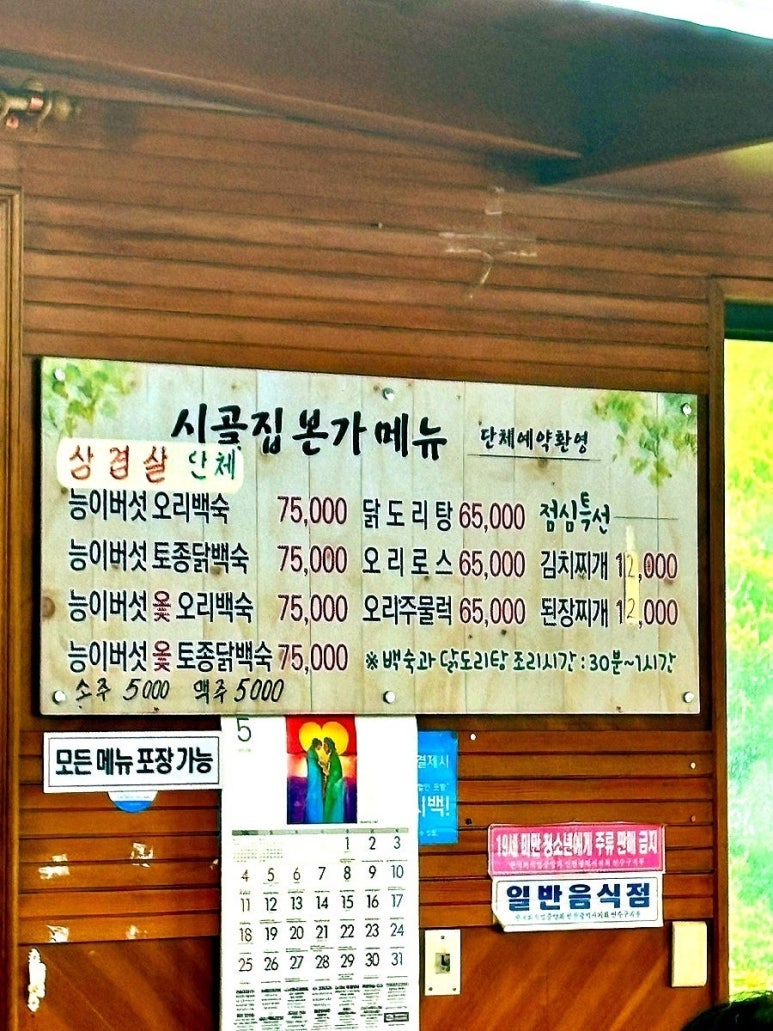 시골집 본가 메뉴 단체예약환영
삼겹살 단체
능이버섯 오리백숙 75,000 닭도리탕 65,000 점심특선
능이버섯 토종닭백숙 75,000 오리로스 65,000 김치찌개 12,000
능이버섯 옻 오리백숙 75,000 오리주물럭 65,000 된장찌개 12,000
능이버섯 옻 토종닭백숙 75,000 ※백숙과 닭도리탕 조리시간 : 30분~1시간
소주 5000 맥주 5000
모든 메뉴 포장 가능
5
결제시
1 2 3
4 5 6 7 8 9 10
11 12 13 14 15 16 17
18 19 20 21 22 23 24
25 26 27 28 29 30 31
19세 미만 청소년에게 주류 판매 금지
일반음식점